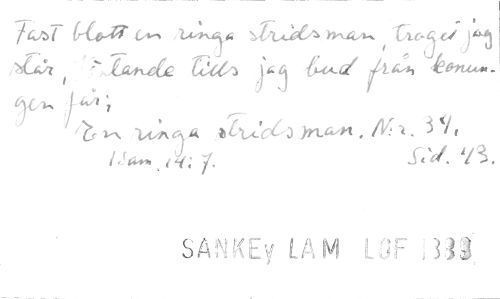 Fast blott en ringa stridsman, troget jag
står, väntande tills jag bud från konun-
gen får;
En ringa stridsman. N:r. 34.
1 Sam. 14:7. Sid. 43.
SANKEy LAM LOF 1883